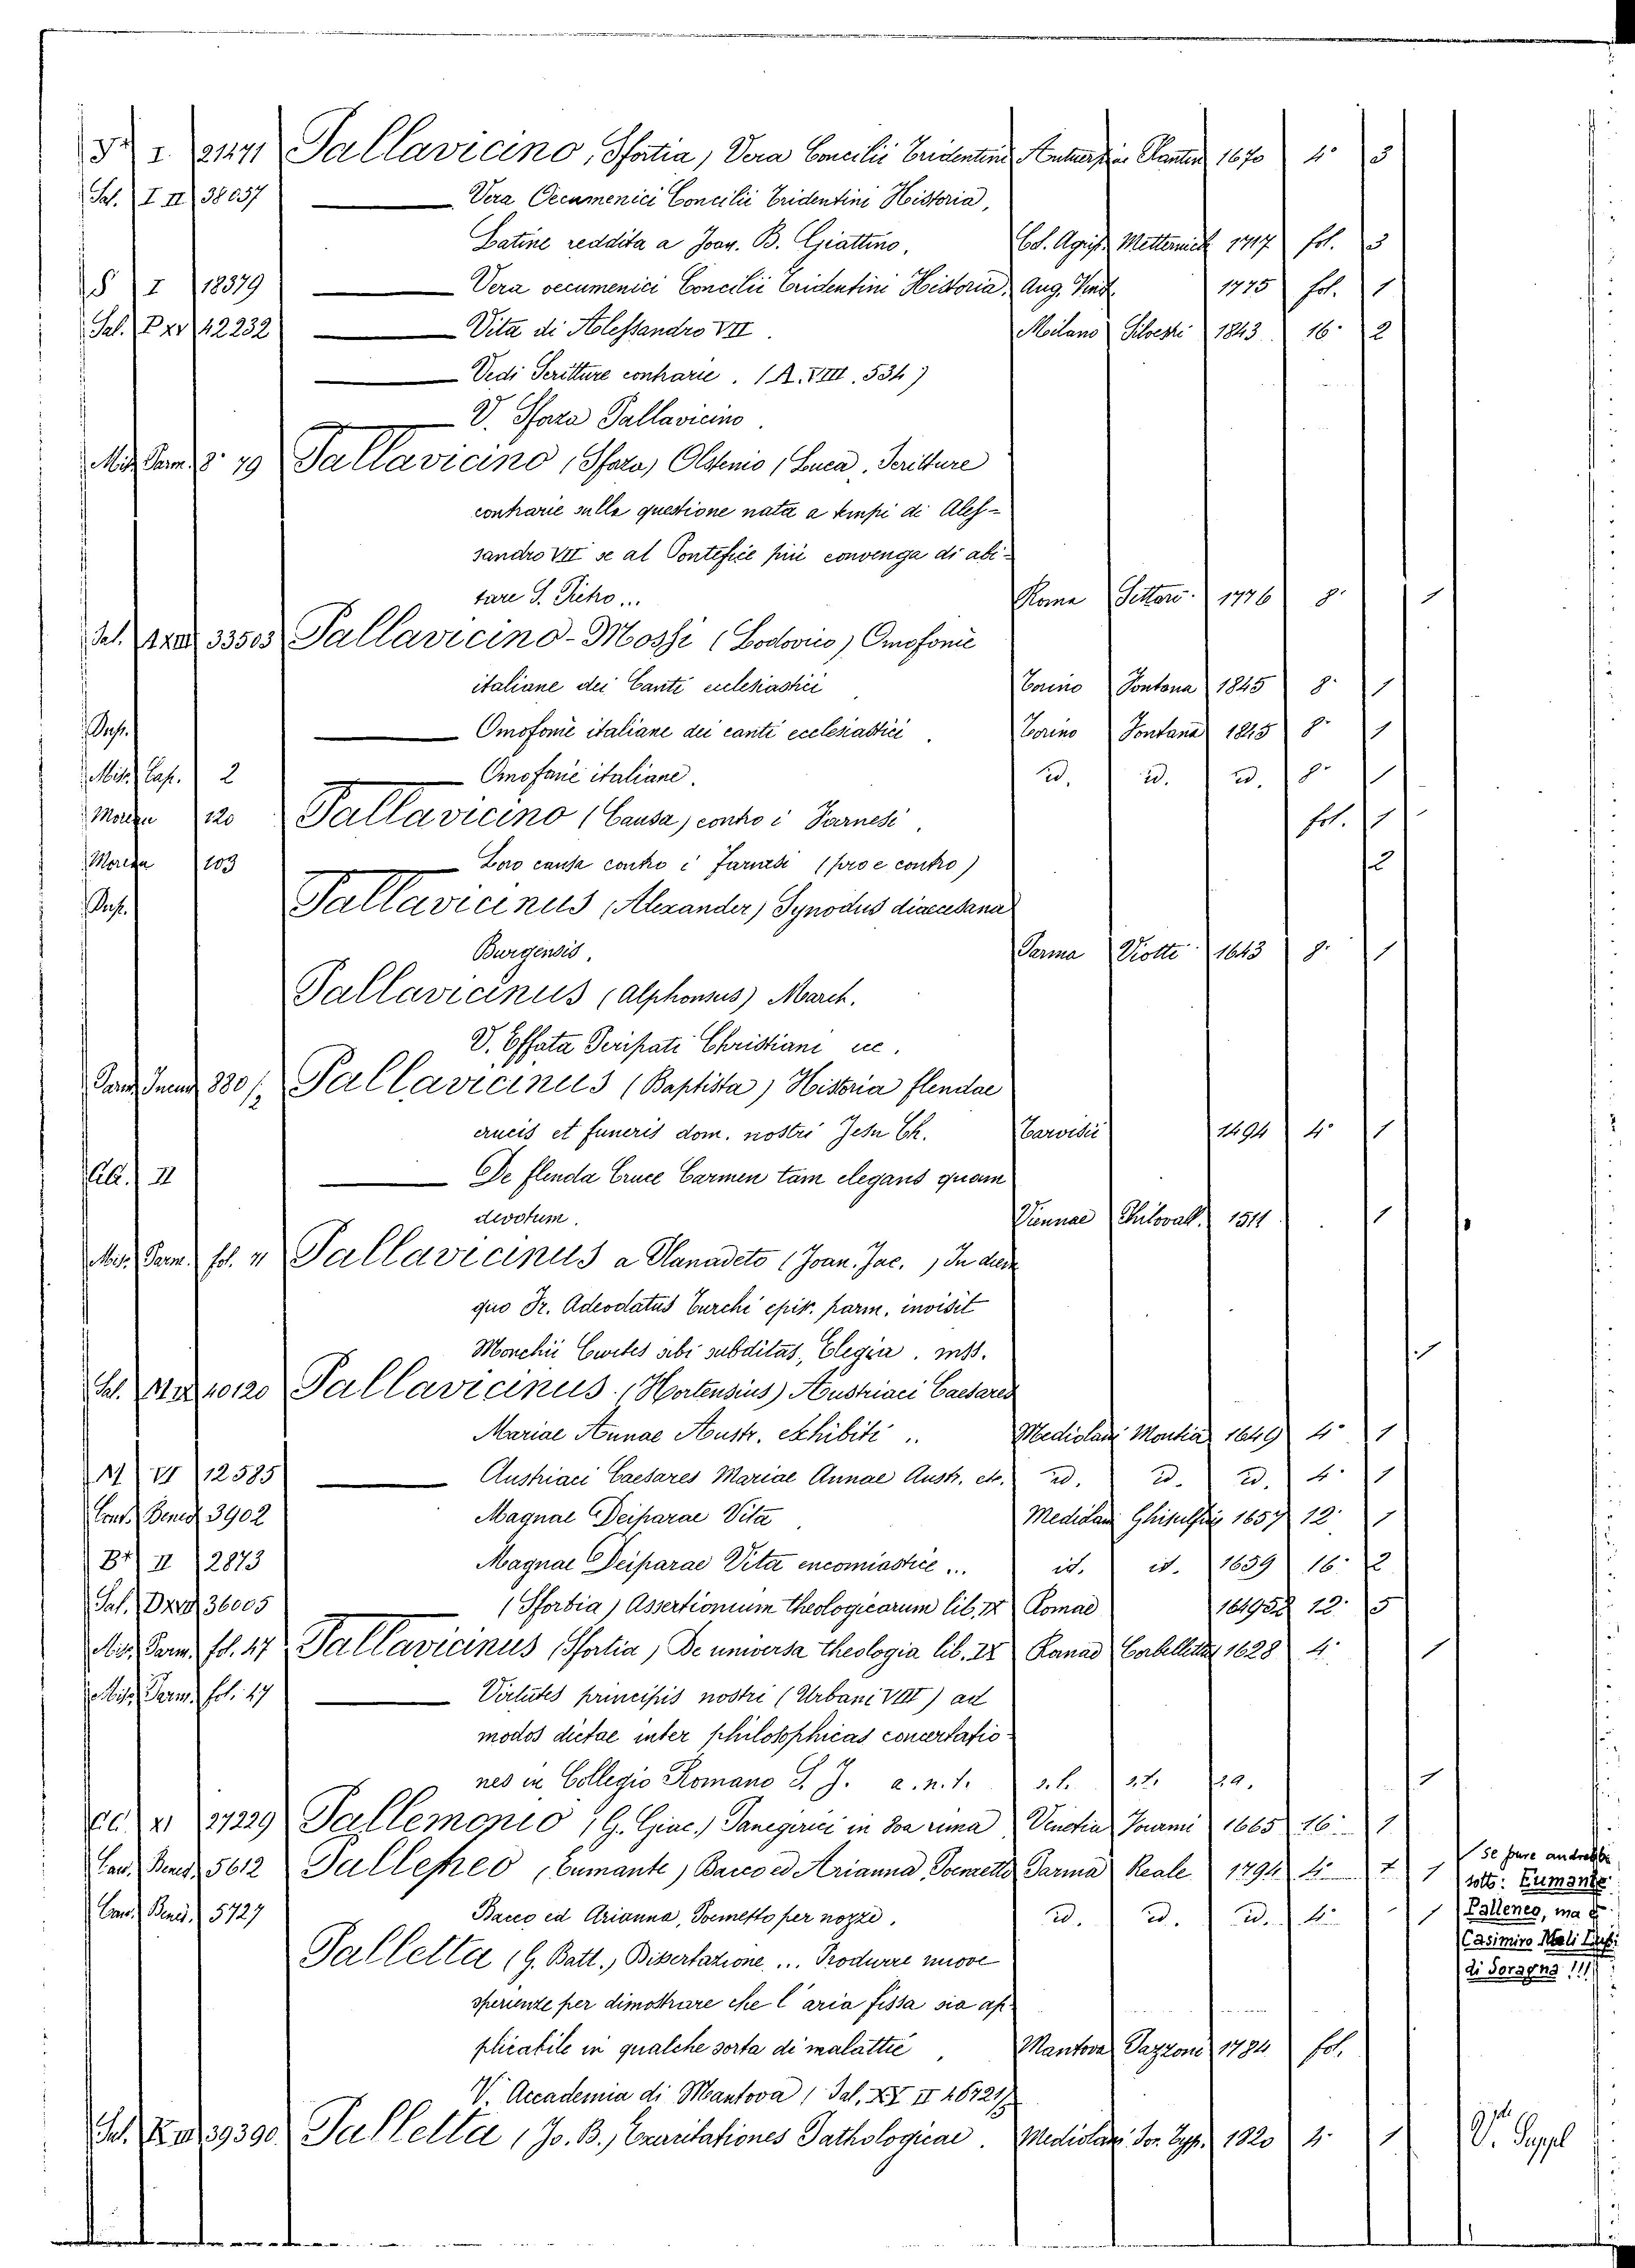 I. 21471 Pallavicino, Sfortia, Vera Concilii Tridentini Plantin 1670 4° 3
Sal. I II 38037 Vera Oecumenici Concilii Tridentini Historia,
Latine reddita a Joan. B. Giattino, Col. Agrip. Metternich 1717 fol. 3
S I 18379 Vera oecumenici Concilii Tridentini Historia, Aug. Vind. 1775 fol. 1
Sal. P XV 42232 Vita di Alessandro VII. Milano Silvestri 1843 16° 2
Vedi Scritture contrarie. (A. VIII. 534)
V. Sforza Pallavicino.
Misc. Parm. 8° 79 Pallavicino (Sforza) Olstenio (Luca), Scritture
contrarie sulla questione nata a tempi di Ales-
sandro VII se al Pontefice più convenga di abi-
tare S. Pietro... Roma 1776 8° 1
Sal. 33503 Pallavicino-Mossi (Lodovico) Omofonie
italiane dei Canti ecclesiastici Torino Fontana 1845 8° 1
Dup. Omofonie italiane dei canti ecclesiastici. Torino Fontana 1845 8° 1
Misc. Cap. 2 Omofonie italiane. id. id. id. 8° 1
120 Pallavicino (Causa) contro i Farnesi. fol. 1
103 Loro causa contro i Farnesi (pro e contro) 2
Dup. Pallavicinus (Alexander) Synodus diocesana
Burgensis. Parma Viotti 1643 8° 1
Pallavicinus (Alphonsus) March.
V. Effata Peripati Christiani etc.
Parm. Incun. 330/2 Pallavicinus (Baptista) Historia flendae
crucis et funeris dom. nostri Jesu Ch. Tarvisii 1494 4° 1
II De flenda Cruce Carmen tam elegans quam
devotum. Viennae 1511 1
Misc. Parm. fol. 4 Pallavicinus a Planadeto (Joan. Jac.) In diem
quo Fr. Adeodatus Turchi epis. parm. invisit
Monchii Curtes sibi subditas, Elegia. mss. 1
Sal. 40120 Pallavicinus (Hortensius) Austriaci Caesares
Mariae Annae Austr. exhibiti.. Mediolani Montia 1649 4° 1
M VI 12585 Austriaci Caesares Mariae Annae Austr. etc. id. id. id. 4° 1
Cons. Bened. 3902 Magnae Deiparae Vita Mediolani Ghisulfii 1657 12° 1
B+ II 2873 Magnae Deiparae Vita encomiastice... id. id. 1659 16° 2
Sal. 36005 (Sfortia) Assertionum theologicarum lib. IX Romae 1649-52 12° 5
Misc. Parm. fol. 47 Pallavicinus Sfortia, De universa theologia lib. IX Romae Corbelletti 1628 4° 1
Misc. Parm. fol. 47 Virtutes principis nostri (Urbani VIII) ad
modos dictae inter philosophicas concertatio-
nes in Collegio Romano S. J. a.n.t. s.l. s.t. s.a. 1
CC. XI 27229 Pallemonio (G. Giac.) Panegirici in 8va rima Venetia 1665 16° 1
Cons. Bened. 5612 Palleneo (Eumante) Bacco ed Arianna, Poemetto Parma Reale 1794 4° 1
Cons. Bened. 5727 Bacco ed Arianna, Poemetto per nozze. id. id. id. 4° 1
Se pure andrebbe
sotto: Eumante
Palleneo, ma è
Casimiro Meli Lupi
di Soragna!!!
Palletta (G. Batt.) Dissertazione... Produrre nuove
sperienze per dimostrare che l'aria fissa sia ap-
plicabile in qualche sorta di malattie. Mantova Pazzoni 1784 fol.
V. Accademia di Mantova (Sal. XX II 46721)
Sal. 39390 Palletta (Jo. B.) Exercitationes Pathologicae. Mediolani Typ. 1820 4° 1 V. Suppl